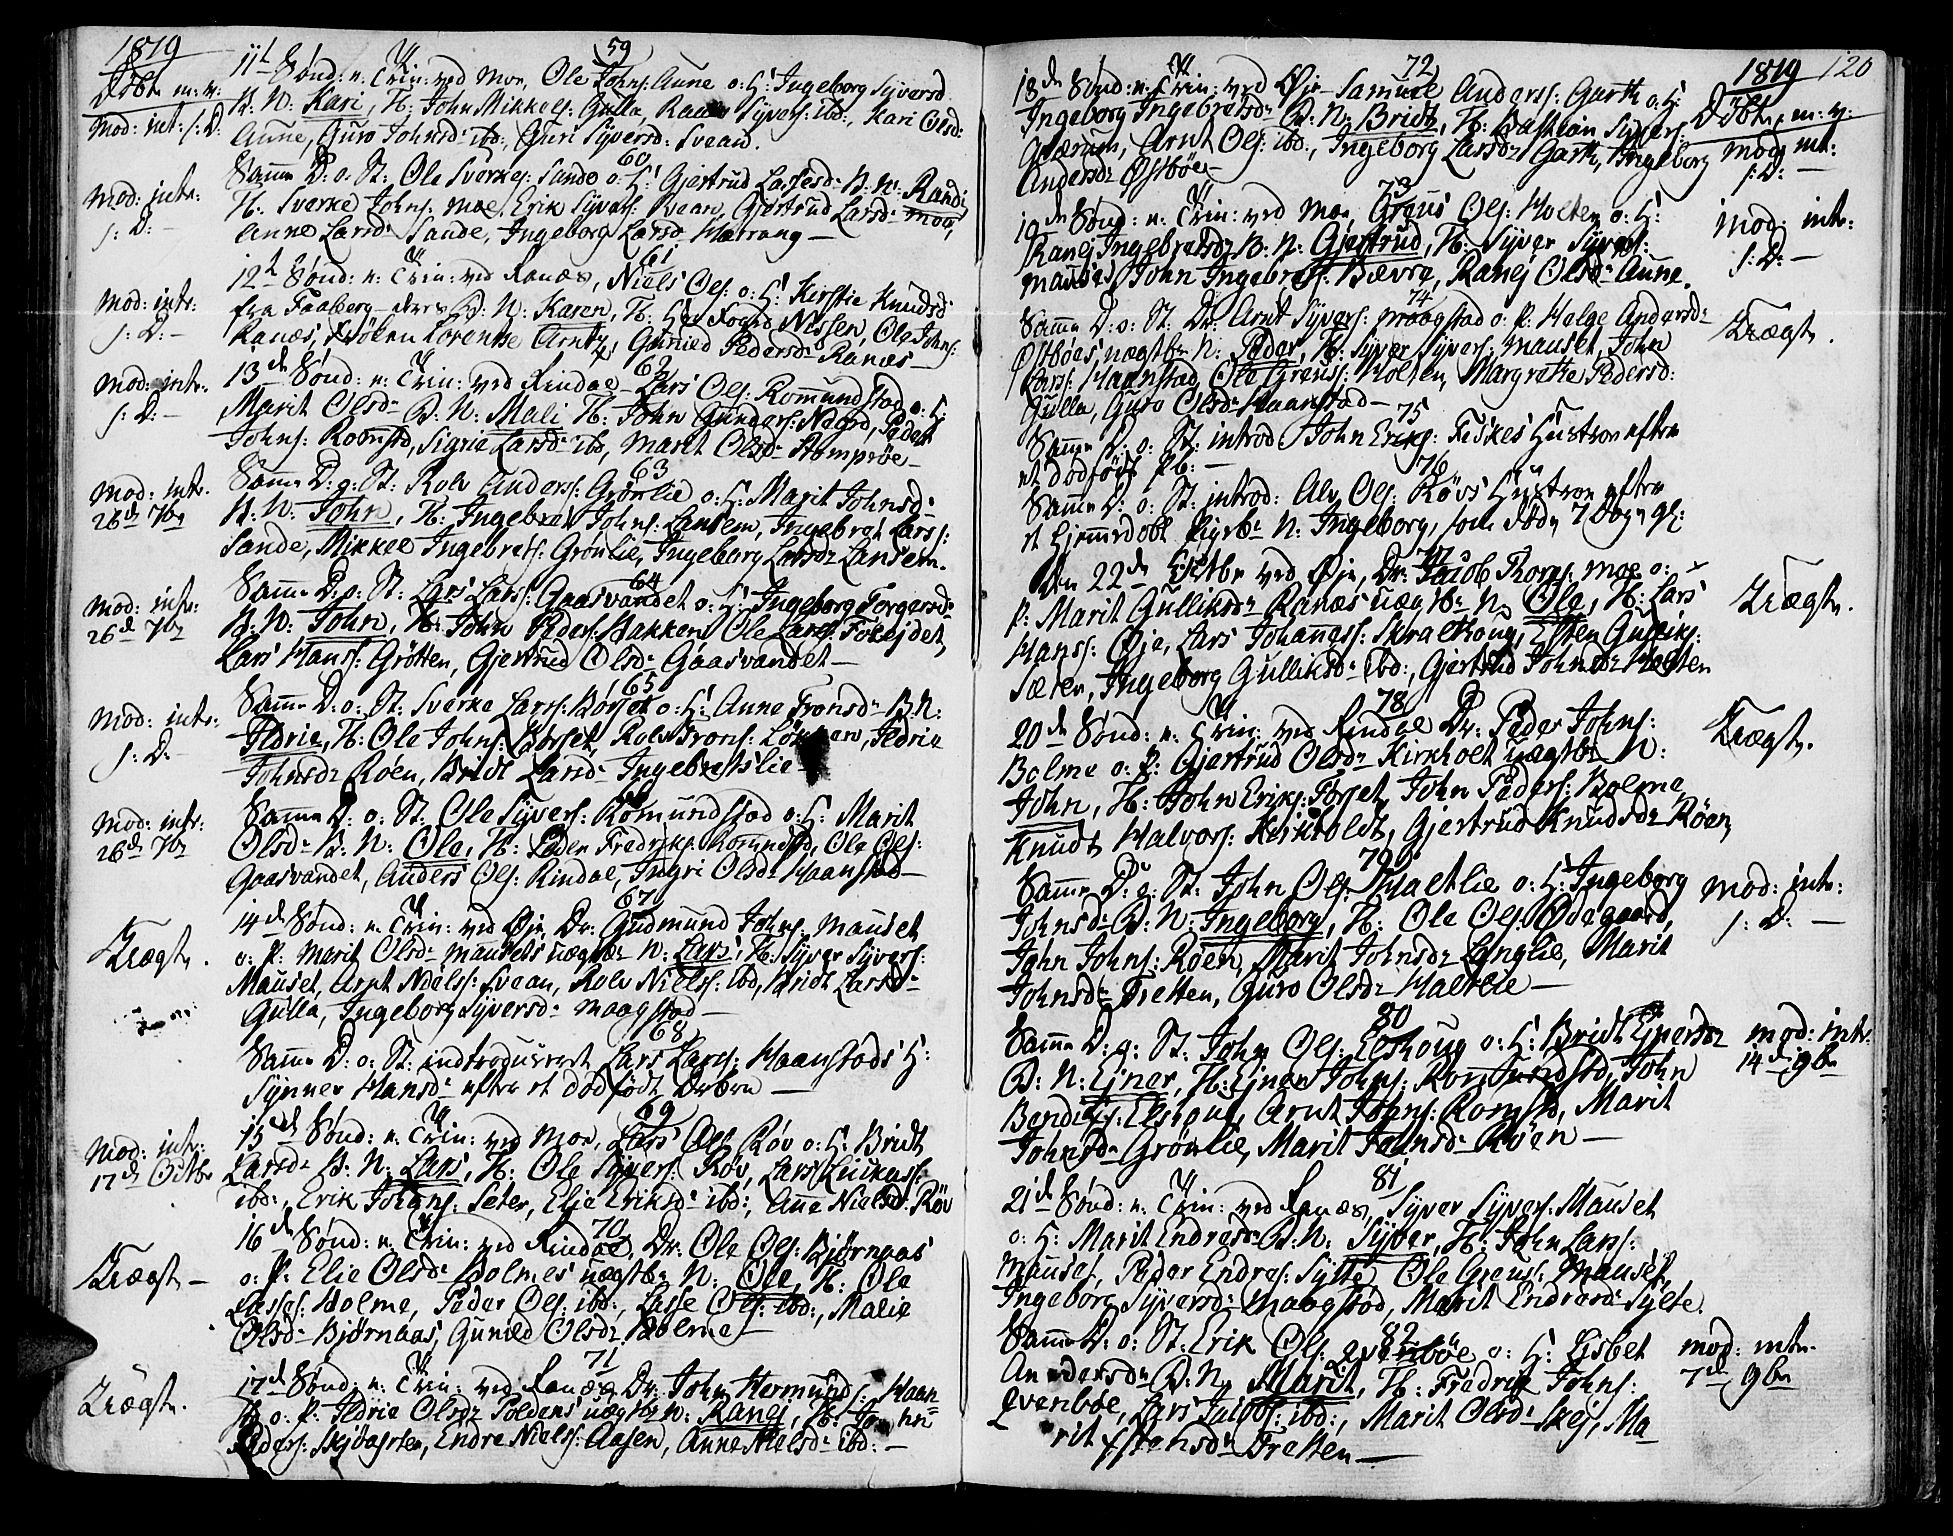 1819
Döbte m: v:
59
11te Sönd: n: Trin: ved Moe, Ole Johns: Aune o: H: Ingeborg Syversd
B: N: Kari, F: John Mikkels: Gulla, Syvers: ibd:, Kari Olsd:
Aune, Guro Johnsdr ibd:, Guri Syversd: Svean.
Mod: int: s: D:
60
Samme D: o: St: Ole Sverkes: Sande o: H: Gjertrud Larsesdr B: N: Randi
F: Sverke Johns: Moe, Erik Syvers: Svean, Gjertrud Larsdr Moe,
Anne Larsdr Sande, Ingeborg Larsdr Harrang —
Mod: intr:
s: D: —
61
12te Sönd: n: Trin: ved Ranæs, Niels Ols: o: H: Kirstie Knudsd
fra Faaberg B: N: Karen, F: Hr Foged Nissen, Ole Johns:
Ranæs, Fröken Lorentze Arntz, Gunild Pedersdr Ranæs —
Mod: intr:
s: D: —
62
13de Sönd: n: Trin: ved Rindal Lars Ols: Romundstad o: H:
Marit Olsdr B: N: Mali F: John Gunders: Negrd, Peder
Johns: Romstd, Sigrie Larsdr ibd, Marit Olsdr Stomprøe —
Mod: intr:
s: D: —
63
Samme D: o: St: Rolv Anders: Grönlie o: H: Marit Johnsdr
B: N: John, F: Ingebret Johns: Lansem, Ingebret Lars:
Sande, Mikkel Ingebrets: Grönlie, Ingeborg Larsdr Lansem.
Mod: intr:
26de 7br
64
Samme D: o: St: Lars Lars: Gaasvandet o: H: Ingeborg Torgersdr
B: N: John, F: John Peders: Bakken, Ole Lars: Foseidet,
Lars Hans: Grötten, Gjertrud Olsdr Gaasvandet —
Mod: intr:
26de 7br
65
Samme D: o: St: Sverke Lars: Börset o: H: Anne Tronsdr B: N:
Ildrie, F: Ole Johns: Börset, Rolv Trons: Ildrie
Johnsdr Röen, Bridt Larsdr Ingebretslie
Mod: intr:
s: D: —
66
Samme D: o: St: Ole Syvers: Romundstad o: H: Marit
Olsdr B: N: Ole, F: Peder Fredriks: Romndstd, Ole Ols:
Gaasvandet, Anders Ols: Rindal, Ingri Olsdr Haanstad —
Mod: intr:
26de 7br
67
14de Sönd: n: Trin: ved Øje, Dr: Gudmund Johns: Mauset
o: P: Marit Olsdr Mausets uægtbr N: Lars, F: Syver Syvers:
Mauset, Arnt Niels: Svean, Rolv Niels: ibd, Bridt Larsdr
Gulla, Ingeborg Syversdr Maagstad —
Uægte.
68
Samme D: o: St: indtroduceret Lars Lars: Haanstads H:
Synnev Hansdr efter et dödfödt Dr
69
15de Sönd: n: Trin: ved Moe, Lars Ols: Röv o: H: Bridt
Larsdr B: N: Lars, F: Ole Syvers: Röv, Lars Lukas:
ibd:, Erik Johans: Seter, Elie Eriksdr ibd:, Anne Nielsdr Röv
Mod: intr:
17de Octbr
70
16de Sönd: n: Trin: ved Rindal, Dr: Ole Ols: Björnaas
o: P: Elie Olsdr Bolmes uægtbr N: Ole, F: Ole
Lasses: Bolme, Peder Ols: ibd:, Lasse Ols: ibd:, Malie
Olsdr Björnaas, Gunild Olsdr Bolme —
Uægte —
71
17de Sönd: n: Trin: ved Ranæs Dr: John Hermunds: Haan-
std o: P: Ildrie Olsdr Poldens uægtbr N: Ranej, F: John
Peders: Endre Niels: Aasen, Anne Nielsdr ibd: —
Uægte.
1819 120
Döbte, m: v:
72
18de Sönd: n: Trin: ved Øje Samuel Anders: Garte o: H:
Ingeborg Ingebretsdr B: N: Bridt, F: Bastian Syvers:
Qværum, Arnt Ols: ibd:, Ingeborg Larsdr Garte, Ingeborg
Andersdr Østböe —
Mod: int:
s: D: —
73
19de Sönd: n: Trin: ved Moe Greus Ols: Holten o: H:
Ranej Ingebretsdr B: N: Gjertrud, F: Syver Syvers:
Mauset, John Ingebrets: Bævre, Ranej Olsdr Aune.
Mod: intr:
s: D: —
74
Samme D: o: St: Dr: Arnt Syvers: Maagstad o: P: Helge Andersdr
Østböes uægtbr N: Peder, F: Syver Syvers: Mauset, John
Lars: Haanstad, Ole Greus: Holten, Margrethe Pedersd:
Gulla, Guro Olsdr Haanstad —
Uægte.
75
Samme D: o: St: introd: John Eriks: Fiskes Hustroe efter
et dödfödt Pb: —
76
Samme D: o: St: introd: Alv Ols: Rövs Hustroe efter
et hjemmedöbt Pigebr N: Ingeborg, som döde 7 Dage gl:
77
Den 22de Octbr ved Øje, Dr: Jacob Thores: Moe o:
P: Marit Gulliksdr Ranæs uægtbr N: Ole, F: Lars
Hans: Øje, Lars Johannes: Skralthoug, Esten Gulliks:
Sæter, Ingeborg Gulliksdr ibd:, Gjertrud Johnsdr Holten
Uægte.
78
20de Sönd: n: Trin: ved Rindal Dr: Peder Johns:
Bolme o: P: Gjertrud Olsdr Kirkholt uægtbr N:
John, F: John Eriks: Forset, John Peders: Bolme,
Knudt Halvors: Kirkholdt, Gjertrud Knudsdr Röen,
Uægte.
79
Samme D: o: St: John Ols: Haltlie o: H: Ingeborg
Johnsdr B: N: Ingeborg, F: Ole Ols: Ødegaard,
John Johns: Röen, Marit Johnsdr Langlie, Marit
Johnsdr Tretten, Guro Olsdr Haltlie —
Mod: intr:
s: D: —
80
Samme D: o: St: John Ols: Elshoug o: H: Bridt Ejnersdr
B: N: Ejner, F: Ejner Johns: Romundstd, John
Bendigs: Elshoug, Arnt Johns: Romstd, Marit
Johnsdr Grönlie, Marit Johnsdr Röen —
Mod: intr:
14de 9br
81
21de Sönd: n: Trin: ved Ranæs, Syver Syvers: Mauset
o: H: Marit Endresdr B: N: Syver, F: John Lars:
Mauset, Peder Endres: Sylte, Ole Greus: Mauset,
Ingeborg Syversdr Maagstad, Marit Endresdr Sylte.
82
Samme D: o: St: Erik Ols: Qvenböe o: H: Lisbet
Andersdr B: N: Marit, F: Fredrik Johns:
Qvenböe, Lars Jacobs: ibd:, Marit Olsdr Skej, Ma-
rit Estensdr Tretten —
Mod: intr.
7de 9br